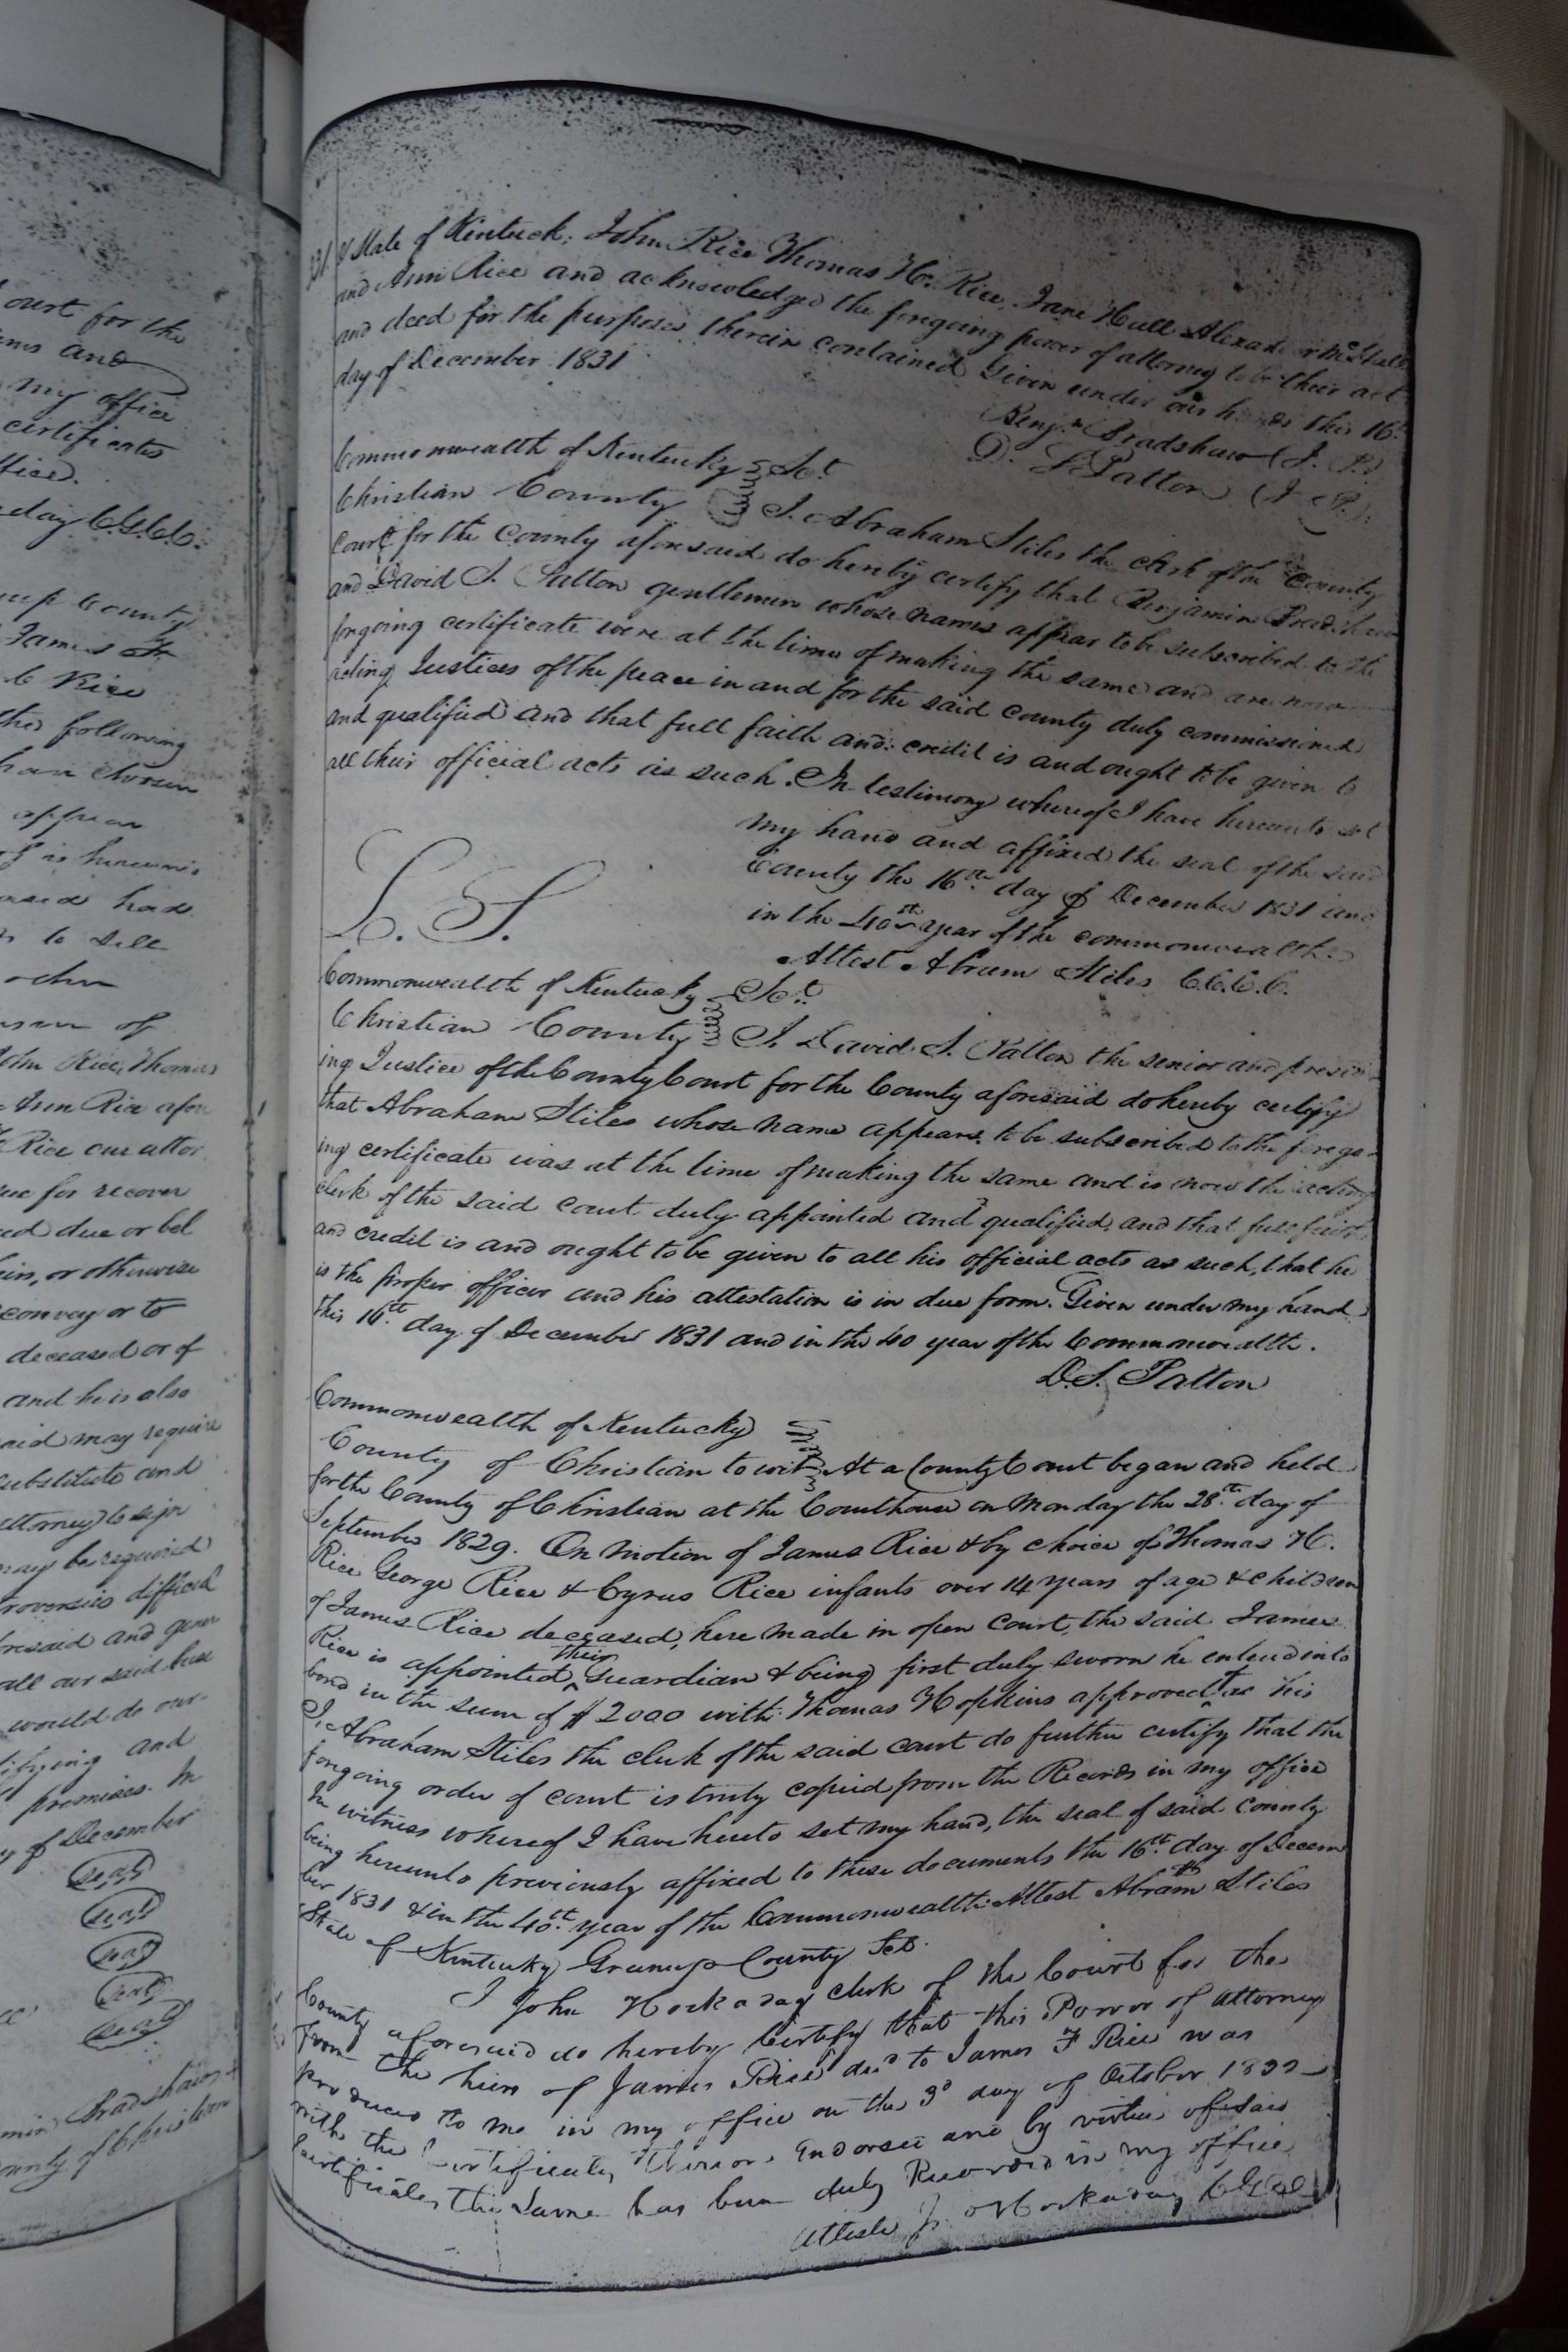 ourt for the
ms and
my office
certificates
ffice.
day C.G.C.C.
up County
James F.
C Rice
the following
appear
ased had
to sell
John
John Rice, Thomas
Ann Rice afor
Rice our attor
sue for recover
ed due or bel
convey or to
deceased or of
and he is also
aid may require
substitute and
attorney to sign
may be required
resaid and gener
all our said busi
would do our
ifying and
premises. In
y of December
(seal)
(seal)
(seal)
(seal)
(seal)
min Bradshaw &
ounty of Christian
State of Kentuck, John Rice Thomas H. Rice, Jane Hull Alexander
and Ann Rice and acknowledged the forgoing power of attorney to be their act
and deed for the purposes therein contained Given under our hands this 16th
day of December 1831
Benjn. Bradshaw (J. P.)
D. S. Patton (J. P.)
Commonwealth of Kentucky Sct
Christian County I. Abraham Stiles the clerk of the County
court for the County aforesaid do hereby certify that Benjamin Bradshaw
and David S. Patton gentlemen whose names appear to be subscribed to the
forgoing certificate were at the time of making the same and are now
acting Justices of the peace in and for the said county duly commissioned
and qualified and that full faith and credit is and ought to be given to
all their official acts as such. In testimony whereof I have hereunto set
my hand and affixed the seal of the said
County the 16th day of December 1831 and
in the 40th year of the commonwealth
L. S.
Attest Abram Stiles C.C.C.C.
Commonwealth of Kentucky Sct.
Christian County I. David S. Patton the senior and presid
ing Justice of the County Court for the County aforesaid do hereby certify
that Abraham Stiles whose name appears to be subscribed to the forego
ing certificate was at the time of making the same and is now the acting
clerk of the said court duly appointed and qualified and that full faith
and credit is and ought to be given to all his official acts as such, that he
is the proper officer and his attestation is in due form. Given under my hand
this 16th day of December 1831 and in the 40 year of the Commonwealth.
D.S. Patton
Commonwealth of Kentucky
County of Christian to wit At a County Court began and held
for the County of Christian at the Courthouse on Monday the 28th day of
September 1829. On motion of James Rice & by choice of Thomas H.
Rice George Rice & Cyrus Rice infants over 14 years of age & children
of James Rice deceased, here made in open court, the said James
Rice is appointed their Guardian & being first duly sworn he entered into
bond in the sum of $2000 with Thomas Hopkins approved as his
I, Abraham Stiles the clerk of the said court do further certify that the
forgoing order of court is truly copied from the Records in my office
In witness whereof I have hereto set my hand, the seal of said county
being hereunto previously affixed to these documents the 16th day of Decem
ber 1831 & in the 40th year of the Commonwealth Attest Abram Stiles
State of Kentucky Greenup County Sct.
I John Hockaday clerk of the Court for the
County aforesaid do hereby Certify that this Power of attorney
from the heirs of James Rice decd to James F Rice was
produced to me in my office on the 3d day of October 1832
with the Certificates thereon Endorsed and by virtue of said
Certificates the same has been duly Recorded in my office
Atteste J. Hockaday C G C C